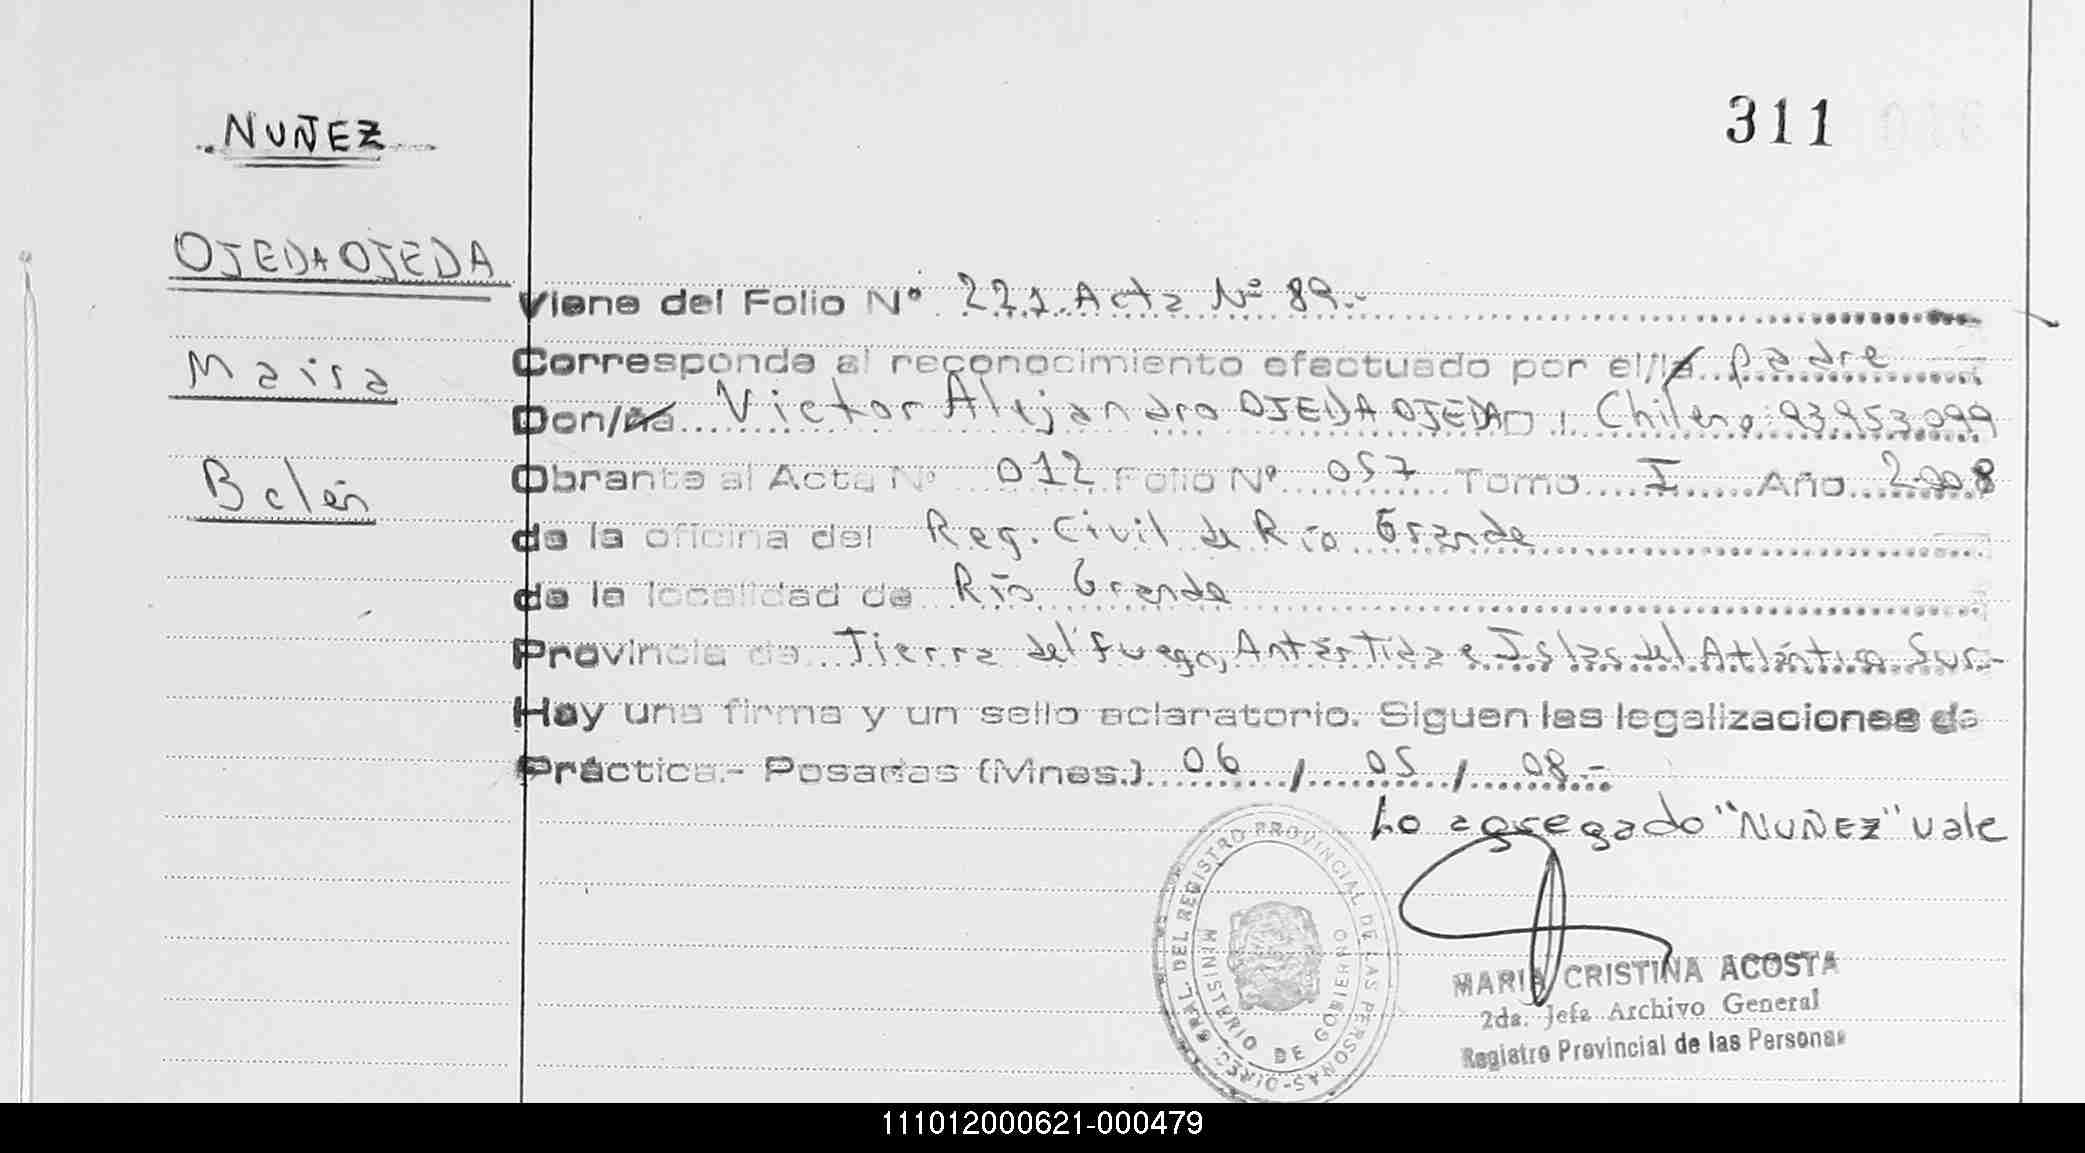 311
NUÑEZ
OJEDA OJEDA
Maira
Belén
Viene del Folio Nº 221 Acta Nº 89.-
Corresponde al reconocimiento efectuado por el/la padre
Don/ña Victor Alejandro OJEDA OJEDA, Chileno: 93.953.099
Obrante al Acta Nº 012 Folio Nº 057 Tomo I Año 2008
de la oficina del Reg. Civil de Río Grande
de la localidad de Río Grande
Provincia de Tierra del Fuego, Antártida e Islas del Atlántico Sur.-
Hay una firma y un sello aclaratorio. Siguen las legalizaciones de
Práctica.- Posadas (Mnes.) 06 / 05 / 08.-
Lo agregado "NUÑEZ" vale
DIREC. GRAL. DEL REGISTRO PROVINCIAL DE LAS PERSONAS-
MINISTERIO DE GOBIERNO
MARIA CRISTINA ACOSTA
2da. Jefa Archivo General
Registro Provincial de las Personas
111012000621-000479